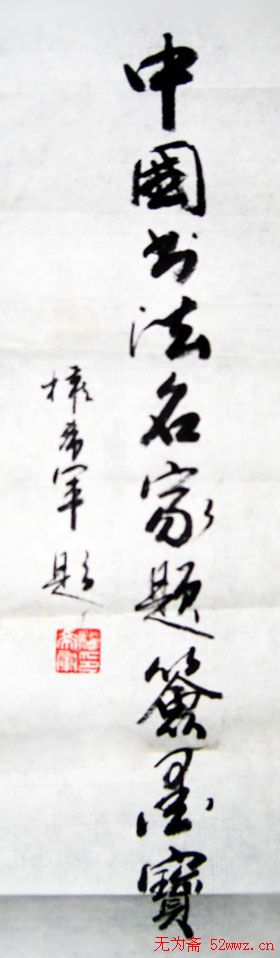 中國书法名家題簽墨寶
權希军 题
无为斋 52wwz.cn